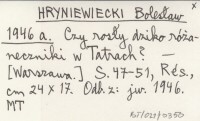 HRYNIEWIECKI Bolesław
x
1946 a. Czy rosły dziko róża-
neczniki w Tatrach? —
[Warszawa.] S. 47-51, Rés.,
cm 24 × 17. Odb. z: jw. 1946.
MT